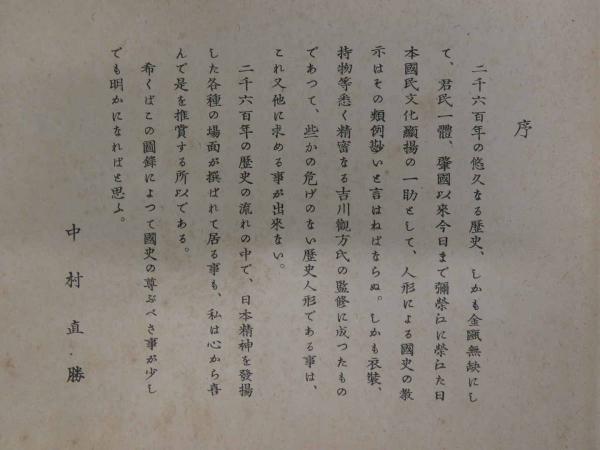 序
二千六百年の悠久なる歴史、しかも金甌無缺にし
て、君民一體、肇國以來今日まで彌榮江に榮江た日
本國民文化顯揚の一助として、人形による國史の敎
示はその類例尠いと言はねばならぬ。しかも衣裝、
持物等悉く精密なる吉川觀方氏の監修に成つたもの
であつて、些かの危げのない歷史人形である事は、
これ又他に求める事が出來ない。
二千六百年の歷史の流れの中で、日本精神を發揚
した各種の場面が撰ばれて居る事も、私は心から喜
んで是を推賞する所以である。
希くばこの圖錄によつて國史の尊ぶべき事が少し
でも明かになればと思ふ。
中村直勝